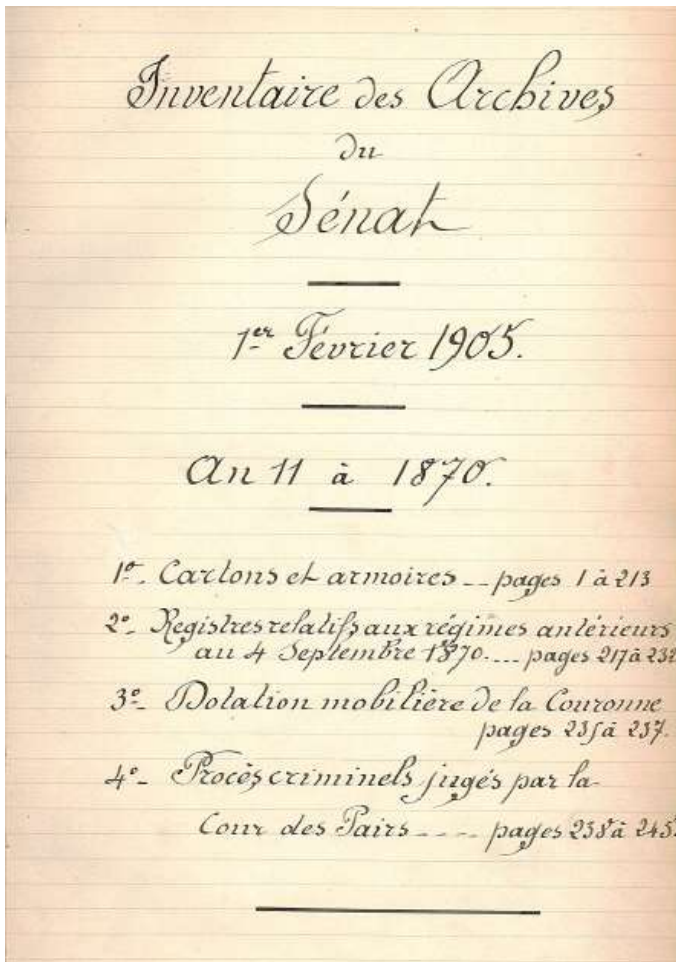 Inventaire des Archives
du
Sénat
1er Février 1905.
An 11 à 1870.
1º- Cartons et armoires -- pages 1 à 213
2º- Registres relatifs aux régimes antérieurs
au 4 Septembre 1870. --- pages 217 à 232
3º- Dotation mobilière de la Couronne
pages 235 à 237.
4º- Procès criminels jugés par la
Cour des Pairs ---- pages 238 à 245.